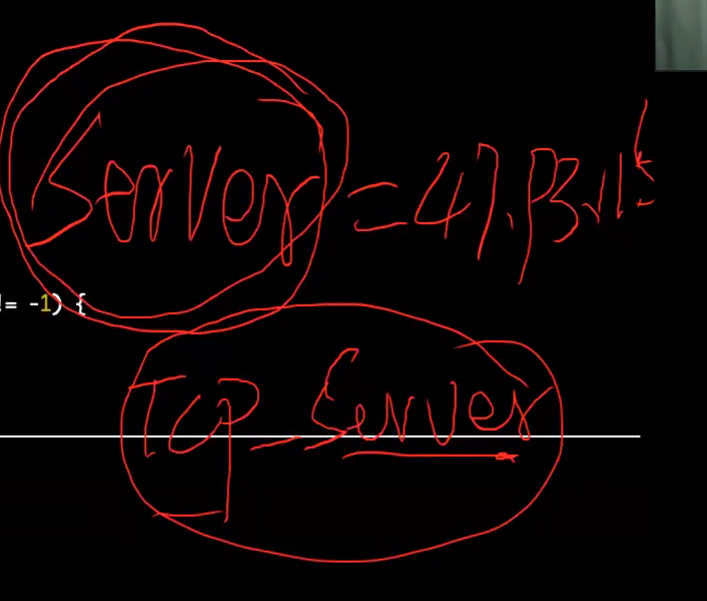 Server = 47.93.11
!= -1) {
TCP_Server